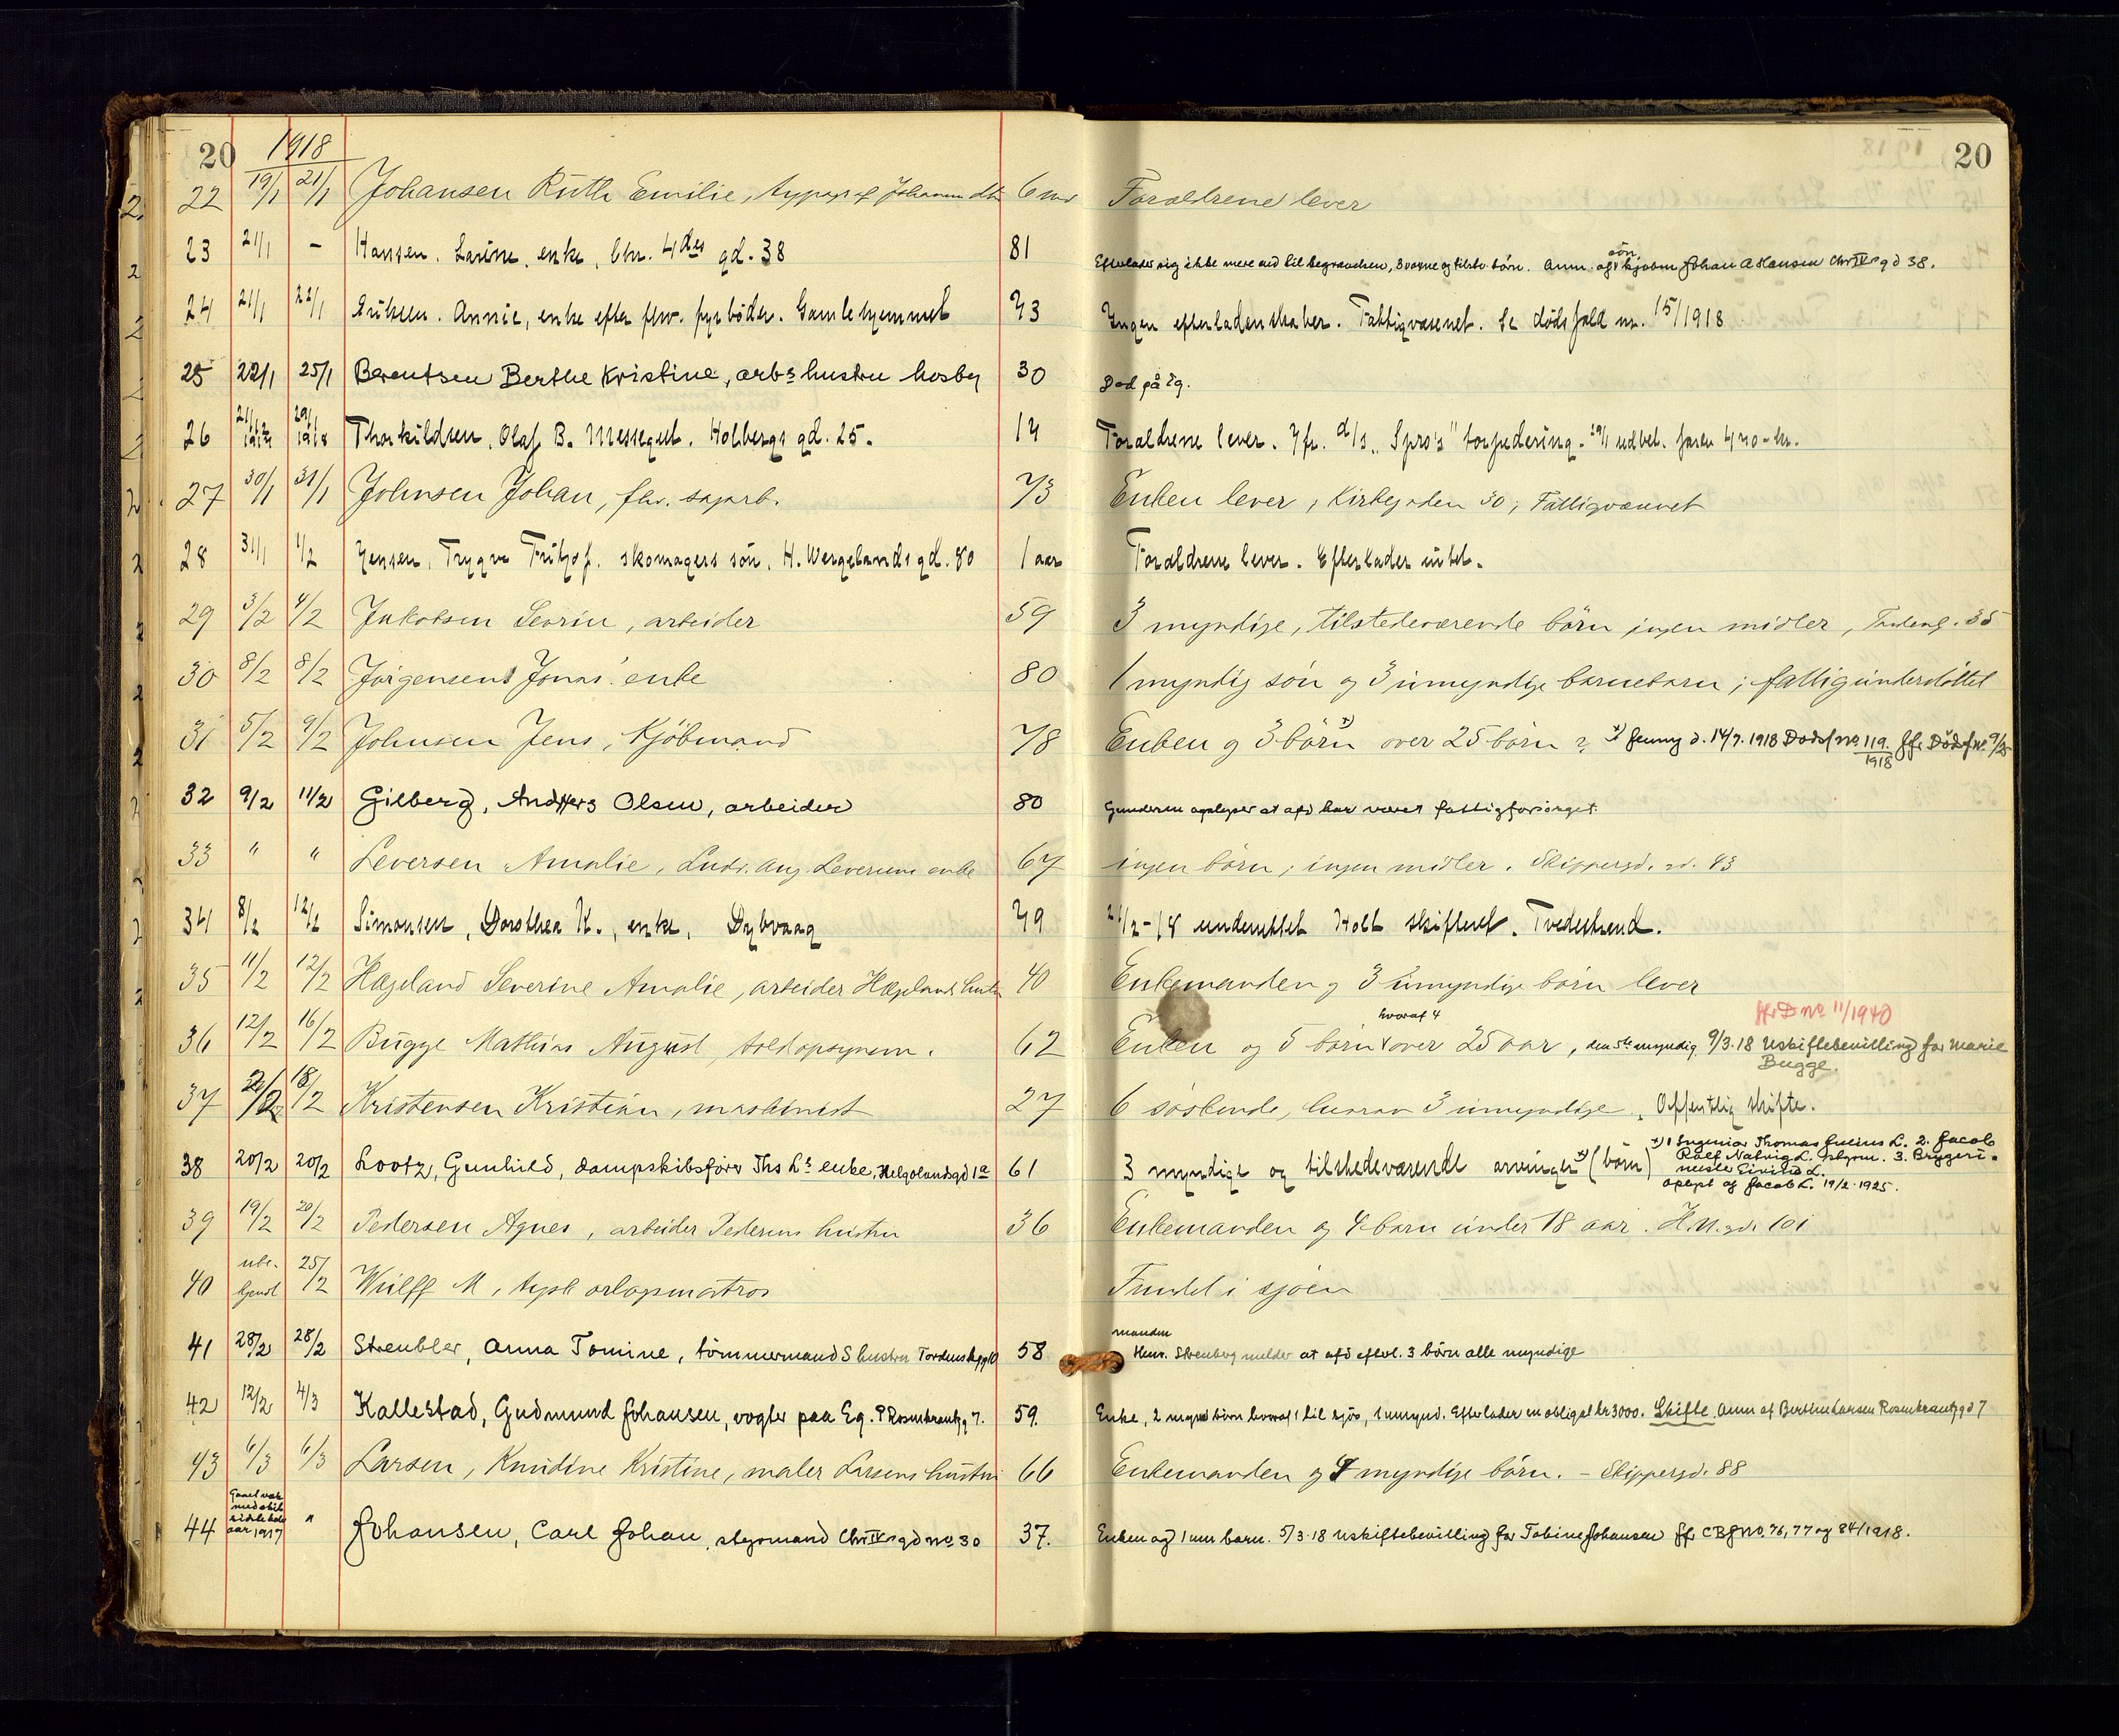 20 1918 20
22 19/1 21/1 Johansen Ruth Emilie, typograf Johansens dtr 6 md Forældrene lever
23 21/1 - Hansen. Larine. enke, Chr. 4des gd. 38 81 Efterlader sig ikke mere end til begravelsen, 3 voxne og tilstv. børn. Anm. af søn kjøbm Johan A Hansen Chr IVs gd 38.
24 21/1 22/1 Eriksen. Annie, enke efter fhv. fyrbøder. Gamlehjemmet 73 Ingen efterladenskaber. Fattigvæsenet. Se dødsfald nr. 15/1918
25 22/1 25/1 Berentsen Berthe Kristine, arbs hustru hosby 30 Død på Eg.
26 21/12 1917 29/1 1918 Thorkildsen, Olaf B. Messegut. Holbergs gd. 25. 17 Forældrene lever. Jfr. d/s. "Spro's" torpedering. 29/1 udbet. faren 470 - kr.
27 30/1 31/1 Johnsen Johan, fhv. sagarb. 73 Enken lever, Kirkegaden 30; Fattigvæsenet
28 31/1 1/2 Jensen, Trygve Fritjof. skomagers søn, H. Wergelands gd. 80 1 aar Forældrene lever. Efterlader intet.
29 3/2 4/2 Jakobsen Sevrin, arbeider 59 3 myndige, tilstedeværende børn ingen midler, 35
30 8/2 8/2 Jørgensens Jonas' enke 80 1 myndig søn og 3 umyndige barnebarn; fattigunderstøttet
31 5/2 9/2 Johnsen Jens, Kjøbmand 78 Enken og 3 børn x) over 25 børn ? x) Jenny d. 14/7. 1918 Dødsf no. 119. 1918 Jfr Dødsf no. 9/25
32 9/2 11/2 Gilberg, Anders Olsen, arbeider 80 Gundersen oplyser at afd har været fattigforsørget.
33 " " Leversen Amalie, Ludv. Aug. Leversens enke 67 ingen børn; ingen midler. Skippergd. nd. 43
34 8/2 12/2 Simonsen, Dorothea K., enke, Dybvaag 79 21/2-18 underrettet Holt skifteret. Tvedestrand.
35 11/2 12/2 Hægeland Severine Amalie, arbeider Hægelands hustru 40 Enkemanden og 3 umyndige børn lever
36 12/2 16/2 Bugge Mathias August, toldopsynsm. 62 Enken og 5 børn hvoraf 4 over 25 aar, den 5te myndig. 9/3.18 Uskiftebevilling for Marie Bugge. Jfr D no. 11/1940
37 2/2 18/2 Kristensen Kristian, maskinist 27 6 søskende, hvorav 3 umyndige. Offentlig skifte.
38 20/2 20/2 Lootz, Gunhild, dampskibsfører Ths Ls enke, Helgolandsgd 1a 61 3 myndige og tilstedeværende arvinger x) (børn) x) 1 Ingeniør Thomas Julius L. 2. Jacob Rolf Natvig L. skysm. 3. Brygeri-mester Eivind L. oplyst af Jacob L. 19/2.1925.
39 19/2 20/2 Pedersen Agnes, arbeider Pedersens hustru 36 Enkemanden og 4 børn under 18 aar. H.U.gd. 101
40 ube-kjendt 25/2 Wulff M, tysk orlogsmatros Fundet i sjøen
41 28/2 28/2 Streubler, Anna Tomine, tømmermandS hustru Tordenskgd 10 58 manden Henr. Streuberg melder at afd efterl. 3 børn alle myndige
42 12/2 4/3 Kallestad, Gudmund Johansen, vogter paa Eg. P Rosenkrantzg 7. 59. Enke, 2 mynd børn hvoraf 1 til sjøs, 1 umynd. Efterlader en obligat kr 3000. Skifte. Anm af Berthine Larsen Rosenkrantzgd 7
43 6/3 6/3 Larsen, Knudine Kristine, maler Larsens hustru 66 Enkemanden og 7 myndige børn. - Skippergd. 88
44 Gaaet væk med skib sidste halv aar 1917 " Johansen, Carl Johan, styrmand Chr IVs gd no 30 37. Enken og 1 um barn. 5/3.18 uskiftebevilling for Tobine Johansen Jfr CBJ No. 76, 77 og 84/1918.